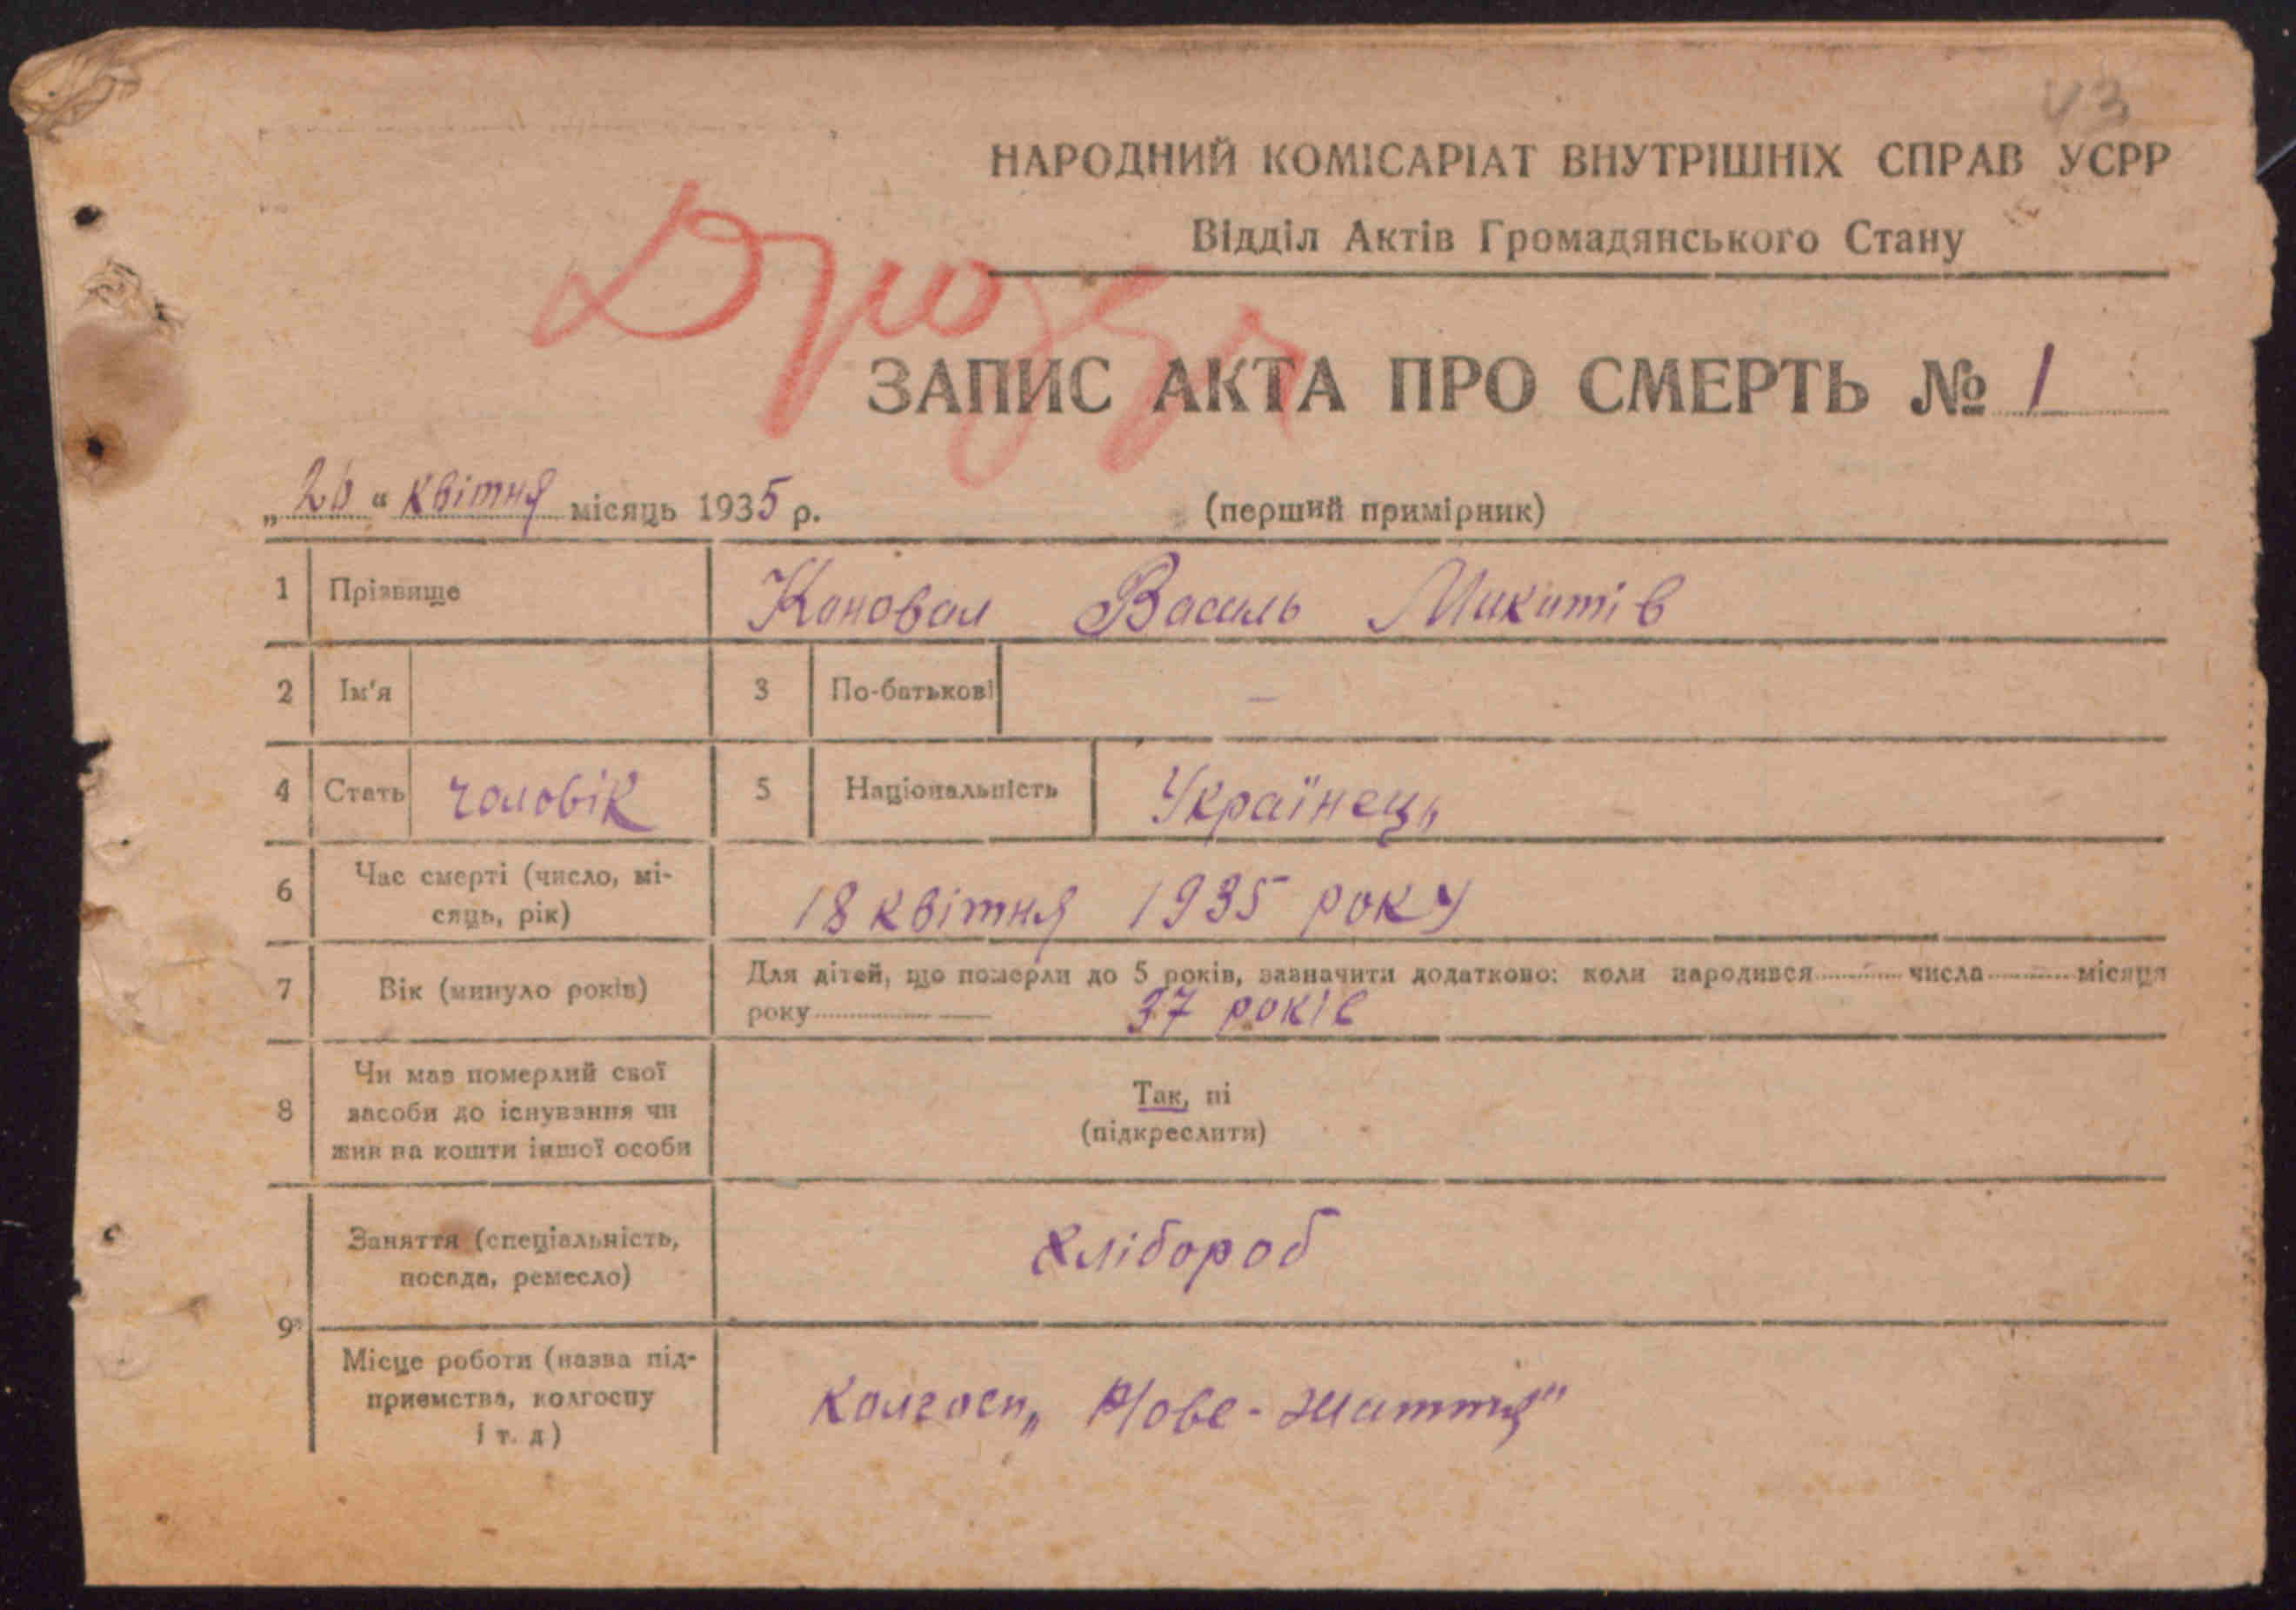 43
НАРОДНИЙ КОМІСАРІАТ ВНУТРІШНІХ СПРАВ УСРР
Відділ Актів Громадянського Стану
ЗАПИС АКТА ПРО СМЕРТЬ № 1
„ 26 “ Квітня місяць 1935 р. (перший примірник)
1 Прізвище Коновал Василь Микитів
2 Ім'я 3 По-батькові –
4 Стать чоловік 5 Національність Українець
6 Час смерті (число, мі-
сяць, рік) 18 квітня 1935 року
7 Вік (минуло років) Для дітей, що померли до 5 років, зазначити додатково: коли народився числа місяця
року 37 років
8 Чи мав померлий свої
засоби до існування чи
жив на кошти іншої особи
Так, ні
(підкреслити)
9 Заняття (спеціальність,
посада, ремесло) Хлібороб
Місце роботи (назва під-
приємства, колгоспу
і т. д) Колгосп „Нове-Життя"